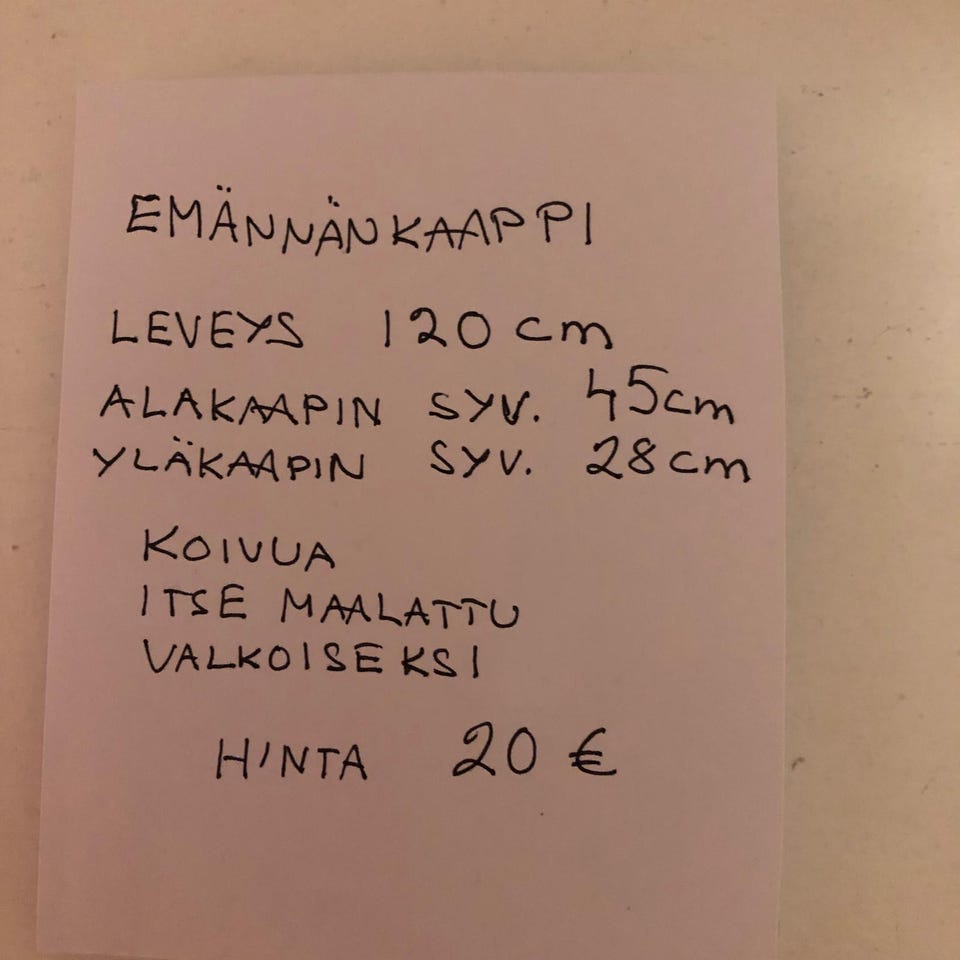 EMÄNNÄNKAAPPI
LEVEYS 120 cm
ALAKAAPIN SYV. 45cm
YLÄKAAPIN SYV. 28cm
KOIVUA
ITSE MAALATTU
VALKOISEKSI
HINTA 20 €